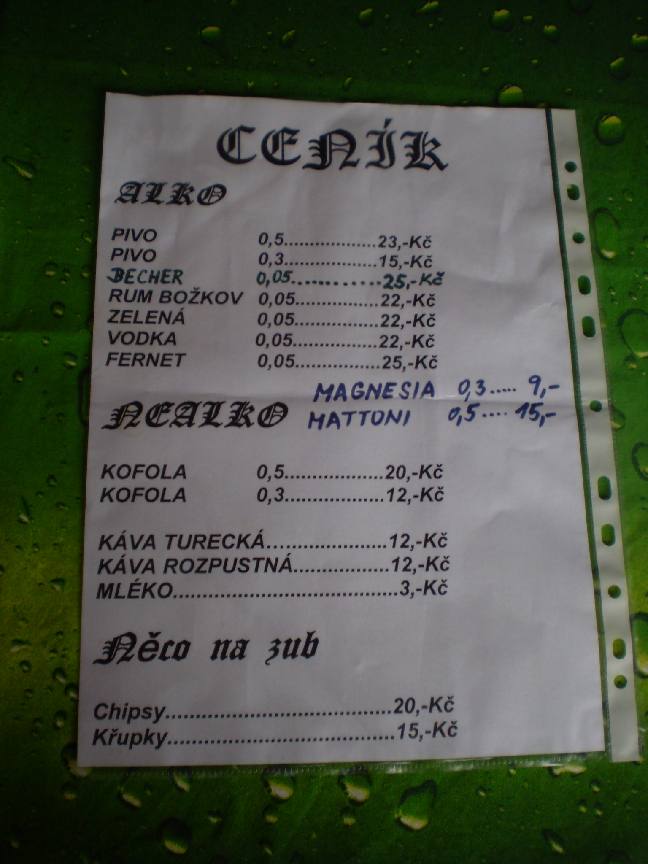 CENÍK
ALKO
PIVO 0,5...................23,-Kč
PIVO 0,3...................15,-Kč
BECHER 0,05...............25,-Kč
RUM BOŽKOV 0,05..................22,-Kč
ZELENÁ 0,05..................22,-Kč
VODKA 0,05..................22,-Kč
FERNET 0,05..................25,-Kč
MAGNESIA 0,3..... 9,-
NEALKO MATTONI 0,5.... 15,-
KOFOLA 0,5....................20,-Kč
KOFOLA 0,3....................12,-Kč
KÁVA TURECKÁ.......................12,-Kč
KÁVA ROZPUSTNÁ..................12,-Kč
MLÉKO...........................................3,-Kč
Něco na zub
Chipsy...........................................20,-Kč
Křupky...........................................15,-Kč